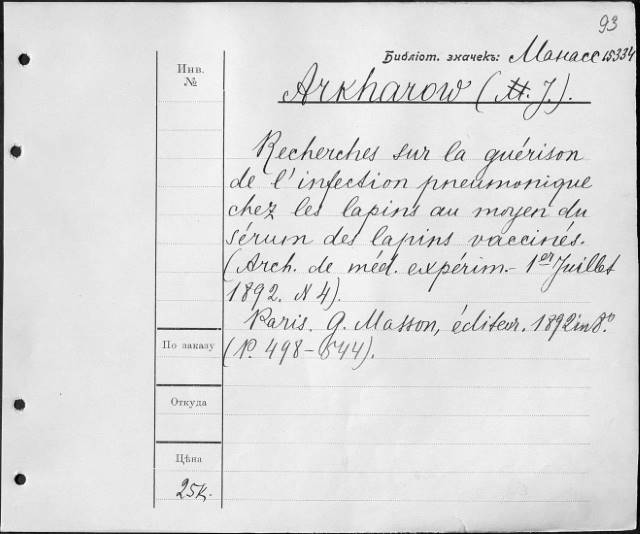 93
Библіот. значекъ: Манасс 15334
Инв. №
Arkharow (J.).
Recherches sur la guérison
de l'infection pneumonique
chez les lapins au moyen du
sérum des lapins vaccinés.
(Arch. de méd. expérim. - 1er Juillet
1892. N 4).
Paris. G. Masson, éditeur. 1892 in 8.º
(P. 498-544).
По заказу
Откуда
Цѣна
25к.